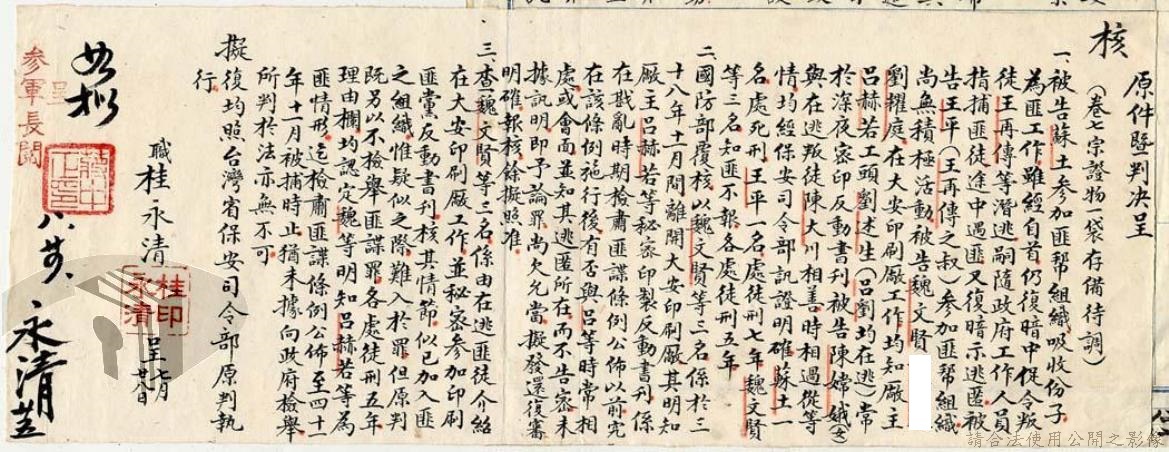 核
原件暨判决呈
(卷七宗證物一袋存備待調)
一、被告蘇土參加匪幫組織吸收份子
為匪工作雖經自首仍復暗中促令叛
徒王再傳等潛逃嗣隨政府工作人員
指捕匪徒途中遇匪又復暗示逃匿被
告王平(王再傳之叔)參加匪幫組織
尚無積極活動被告魏文賢
劉耀庭在大安印刷廠工作均知廠主
呂赫若工頭劉述生(呂劉均在逃)常
於深夜密印反動書刊被告陳嫦娥(女)
與在逃叛徒陳大川相善時相過從等
情均經保安司令部訊證明確蘇土一
名處死刑王平一名處徒刑七年魏文賢
等三名知匪不報各處徒刑五年
二、國防部覆核以魏文賢等三名係於三
十八年十一月間離開大安印刷廠其明知
廠主呂赫若等秘密印製反動書刊係
在戡亂時期檢肅匪諜條例公佈以前究
在該條例施行後有否與呂等時常相
處或會面並知其逃匿所在而不告密未
據訊明即予論罪尚欠允當擬發還復審
明確報核餘擬照准
三、查魏文賢等三名係由在逃匪徒介紹
在大安印刷廠工作並秘密參加印刷
匪黨反動書刊核其情節似已加入匪
之組織惟疑似之際難入於罪但原判
既另以不檢舉匪諜罪各處徒刑五年
理由欄均認定魏等明知呂赫若等為
匪情形迄檢肅匪諜條例公佈至四十一
年十一月被捕時止猶未據向政府檢舉
所判於法亦無不可
擬復均照台灣省保安司令部原判執
行
職桂永清
桂永清印
呈 七月廿八日
如擬
呈
參軍長閱
蔣中正印
八、
永清
請合法使用公開之影像